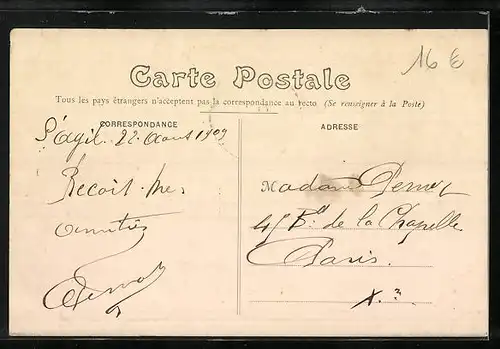 16 €
Carte Postale
Tous les pays étrangers n'acceptent pas la correspondance au recto (Se renseigner à la Poste)
CORRESPONDANCE
S'Agil 22 Aout 1909
Recois mes
amitiés
ADRESSE
Madame
45 Bd de la Chapelle
Paris.